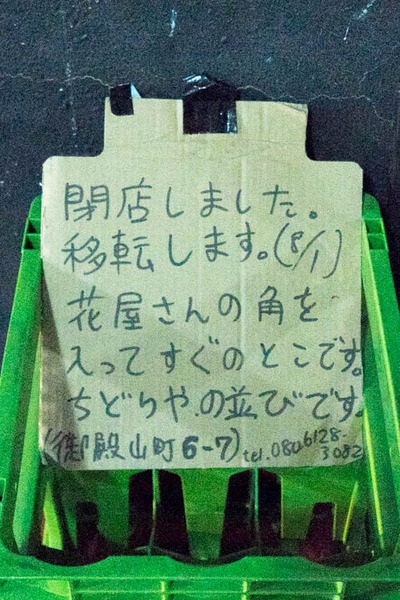 閉店しました。
移転します。(8/1)
花屋さんの角を
入ってすぐのとこです。
ちどりや.の並びです.
(御殿山町6-7) tel.080 6128-
3082